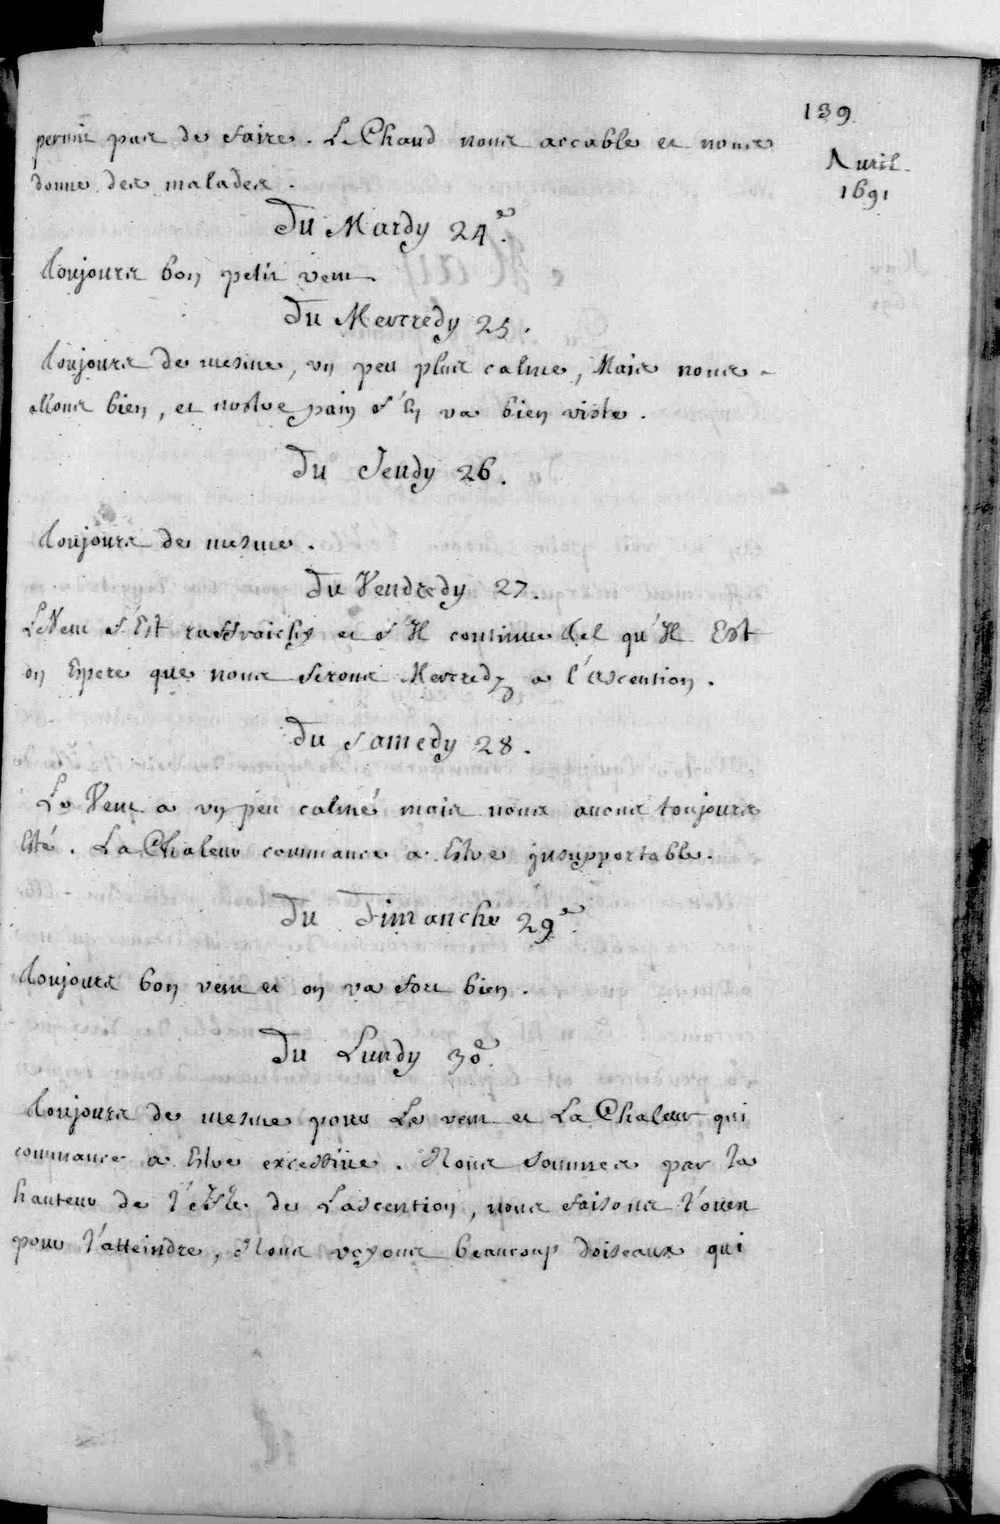 139
Avril
1691
permis pas de faire. Le Chaud nous accable et nous
donne des malades.
Du Mardy 24e.
Toujours bon petit vent
Du Mercredy 25.
Toujours de mesme, un peu plus calme, Mais nous
allons bien, et nostre pain s'en va bien viste.
Du Jeudy 26.
Toujours de mesme.
Du Vendredy 27.
Le Vent s'Est raffraichy et s'Il continue tel qu'Il Est
on Espere que nous serons Mercredy a l'ascention.
Du Samedy 28.
Le Vent a un peu calmé mais nous avons toujours
Esté. La Chaleur commance a Estre insupportable.
Du Dimanche 29e.
Toujours bon vent et on va fort bien.
Du Lundy 30e.
Toujours de mesme pour Le vent et La Chaleur qui
commance a Estre excessive. Nous sommes par la
hauteur de l'Isle de Lascention, nous faisons l'ouest
pour l'atteindre, Nous voyons beaucoup doiseaux qui